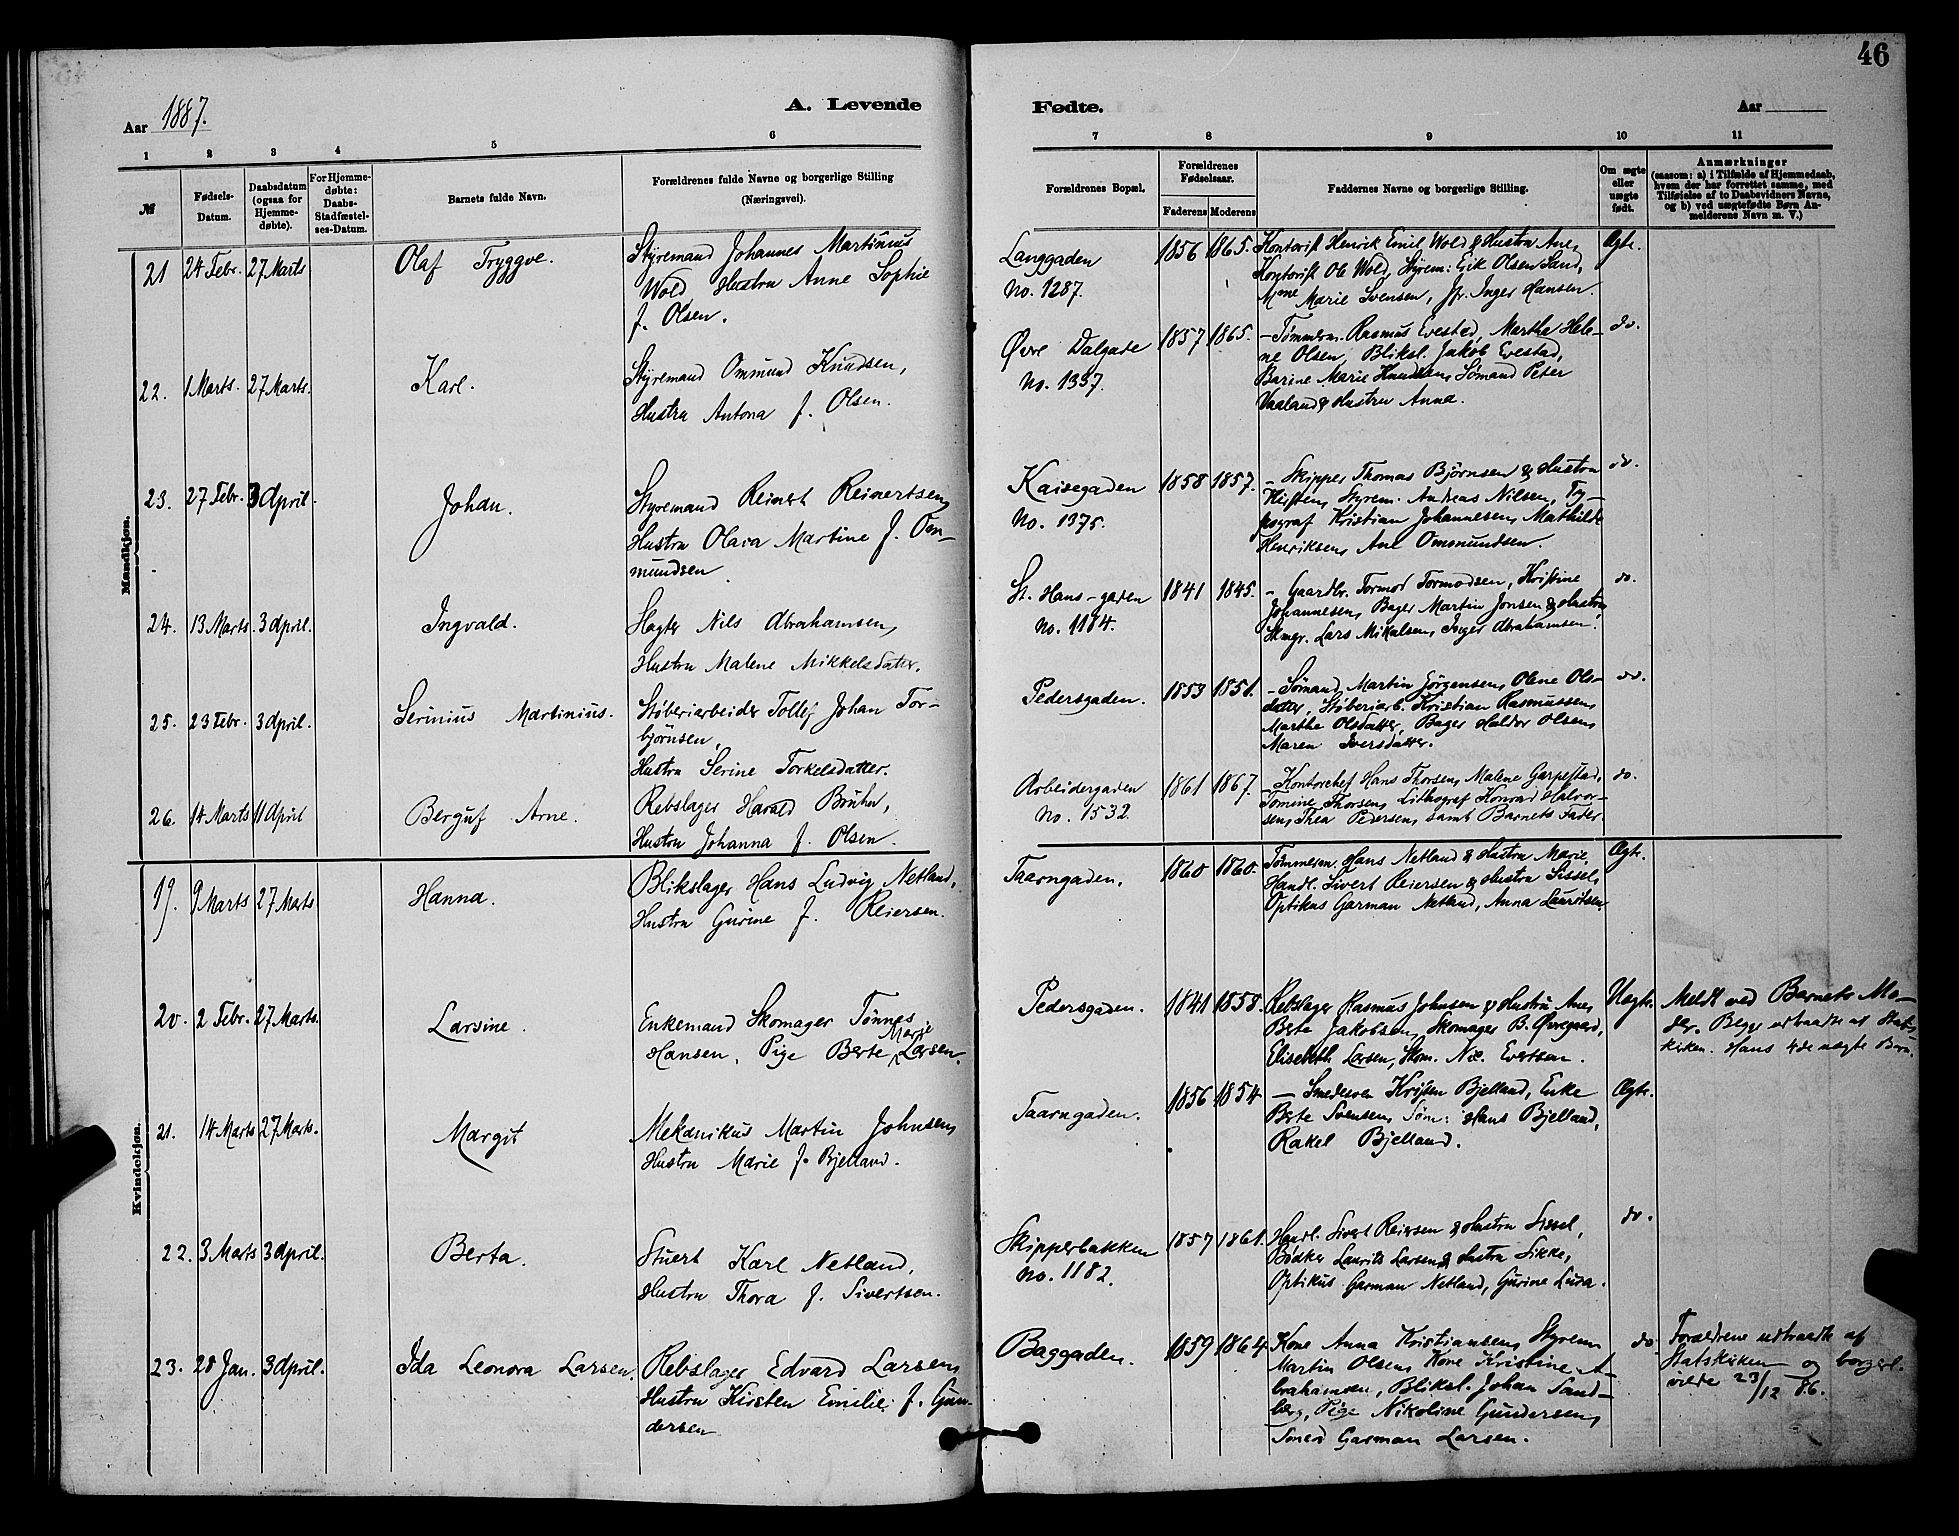 46
Aar 1887.
A. Levende
Fødte.
Aar
1 2 3 4 5 6 7 8 9 10 11
№
Fødsels-Datum.
Daabsdatum (ogsaa for Hjemmedøbte).
For Hjemmedøbte: Daabs-Stadfæstelses-Datum.
Barnets fulde Navn.
Forældrenes fulde Navne og borgerlige Stilling
(Næringsvei).
Forældrenes Bopæl.
Forældrenes Fødselsaar.
Faderens Moderens
Faddernes Navne og borgerlige Stilling.
Om ægte eller uægte født.
Anmærkninger
(saasom: a) i Tilfælde af Hjemmedaab,
hvem der har forrettet samme, med
Tilføielse af to Daabsvidners Navne,
og b) ved uægtefødte Børn Anmelderens Navn m. V.)
Mandkjøn.
21 24 Febr. 27 Marts Olaf Tryggve. Styremand Johannes Martinius
Wold Hustru Anne Sophie
f. Olsen.
Langgaden
No. 1287.
1856 1865. Kontorist Henrik Emil Wold & Hustru Ane,
Kontorist Ob Wold, Styrem: Erik Olsen Sand,
Mme Marie Svensen, Jfr. Inger Hansen.
Ægte.
22. 1 Marts. 27 Marts. Karl. Styremand Ommund Knudsen,
Hustru Antona f. Olsen.
Øvre Dalgade
No. 1337.
1857 1865. – Tømmerm. Rasmus Evestad, Marthe Hele-
ne Olsen, Bliksl. Jakob Evestad,
Barine Marie Knudsen, Sømand Peter
Vaaland & Hustru Anna.
do.
23. 27 Febr. 3 April. Johan. Styremand Reinert Reinertsen,
Hustru Olava Martine f. Om-
mundsen.
Kaisegaden
No. 1375.
1858 1857. – Skipper Thomas Bjørnsen & Hustru
Kristen, Styrem. Andreas Nilsen, Ty-
pograf Kristian Johannesen, Mathilde
Henriksen, Ane Ommundsen.
do.
24. 13 Marts. 3 April. Ingvald. Slagter Nils Abrahamsen,
Hustru Malene Mikkelsdatter.
St. Hans-gaden
No. 1184.
1841 1845. – Gaardbr. Tormod Tormodsen, Kristine
Johannesen, Bager Martin Jonsen & Hustru,
Skmgr. Lars Mikalsen, Inger Abrahamsen.
do.
25. 23 Febr. 3 April. Serinius Martinius. Støberiarbeider Tollef Johan Tor-
bjørnsen,
Hustru Serine Torkelsdatter.
Pedersgaden.
1853 1851. – Sømand Martin Jørgensen, Olene Ols-
datter, Støberiarb. Kristian Rasmussen,
Marthe Olsdatter, Bager Haldor Olsen,
Maren Iversdatter.
do.
26. 14 Marts 11 April Berguf Arne. Rebslager Harald Bruhn,
Hustru Johanna f. Olsen.
Arbeidergaden
No. 1532.
1861 1867. – Kontorchef Hans Thorsen, Malene Garpestad,
Tomine Thorsen, Lithograf Konrad Halvor-
sen, Thea Pedersen, samt Barnets Fader.
do.
Kvindekjøn.
19. 9 Marts 27 Marts Hanna. Blikslager Hans Ludvig Netland,
Hustru Gurine f. Reiersen.
Taarngaden.
1860 1860. Tømmerm. Hans Netland & Hustru Marie,
Handl. Sivert Reiersen & Hustru Sissel,
Optikus Garman Netland, Anna Lauritsen.
Ægte.
20. 2 Febr. 27 Marts. Larsine. Enkemand Skomager Tønnes
Hansen, Pige Berte Marie Larsen.
Pedersgaden.
1841 1858. Rebslager Rasmus Johnsen & Hustru Ane,
Berte Jakobsen, Skomager B. Øvregaard,
Elisebeth Larsen, Skom. Nic. Evertsen.
Uægte. Meldt ved Barnets Mo-
der. Begge udtraadte af Stats-
kirken. Hans 4de uægte Barn.
21. 14 Marts 27 Marts. Margit Mekanikus Martin Johnsen,
Hustru Marie f. Bjelland.
Taarngaden.
1856 1854 – Smedesven Kristen Bjelland, Enke
Berte Svensen, Tøm: Hans Bjelland,
Rakel Bjelland.
Ægte.
22. 3 Marts 3 April. Berta. Stuert Karl Netland,
Hustru Thora f. Sivertsen.
Skipperbakken
No. 1182.
1857 1861. Handl. Sivert Reiersen & Hustru Sissel,
Bødker Laurits Larsen & Hustru Sikke,
Optikus Garman Netland, Gurine Lura.
do.
23. 28 Jan. 3 April. Ida Leonora Larsen. Rebslager Edvard Larsen,
Hustru Kirsten Emilie f. Gun-
dersen
Baggaden.
1859 1864 Kone Anna Kristiansen, Styrem
Martin Olsen, Kone Kristine A-
brahamsen, Bliksl. Johan Sand-
berg, Pige Nikoline Gundersen,
Garman Larsen.
do. Forældrene udtraadte af
Statskirken og borgerl.
viede 23/12 86.